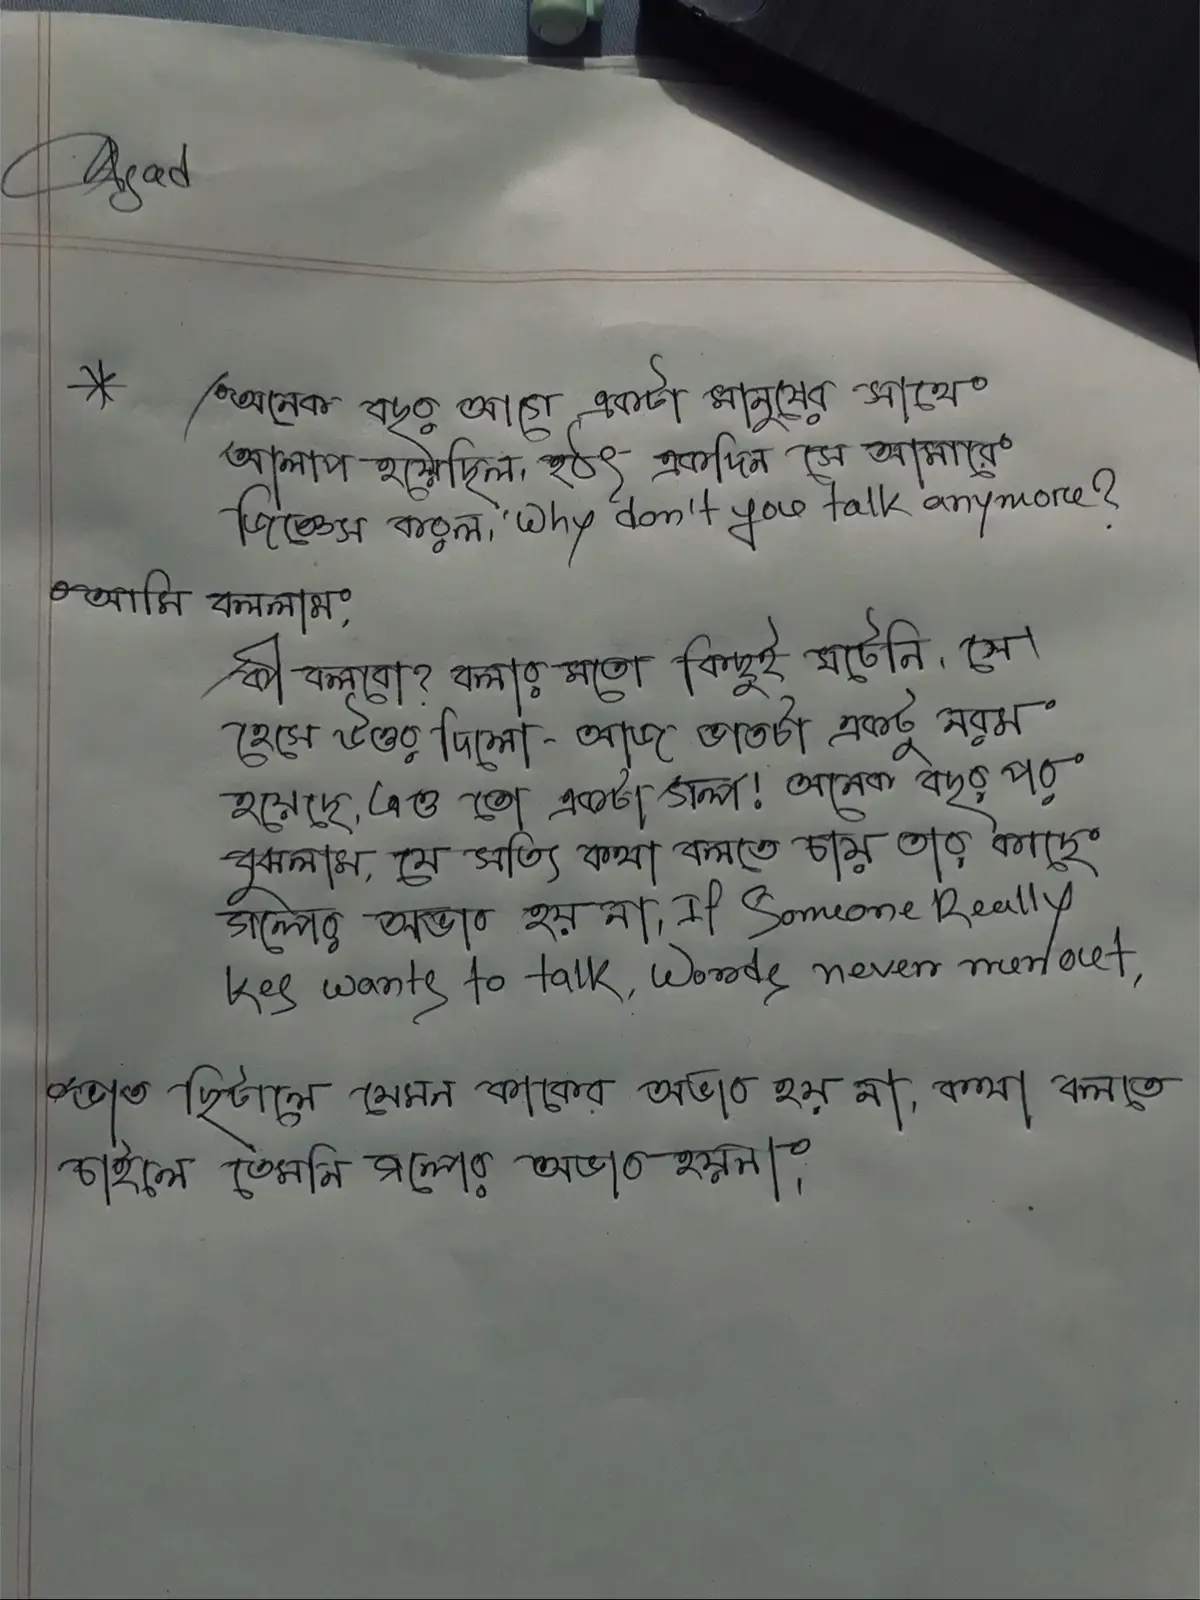 Asad
* অনেক বছর আগে একটা মানুষের সাথে
আলাপ হয়েছিল, হঠাৎ একদিন সে আমারে
জিজ্ঞেস করল, 'Why don't you talk anymore?
আমি বললাম,
কী বলবো? বলার মতো কিছুই ঘটেনি, সে।
হেসে উত্তর দিলো - আজ ভাতটা একটু নরম
হয়েছে, এও তো একটা গল্প! অনেক বছর পর
বুঝলাম, যে সত্যি কথা বলতে চায় তার কাছে
গল্পের অভাব হয় না, If Someone Really
wants to talk, Words never run out,
ভাত ছিটালে যেমন কাকের অভাব হয় না, কথা বলতে
চাইলে তেমনি গল্পের অভাব হয়না,